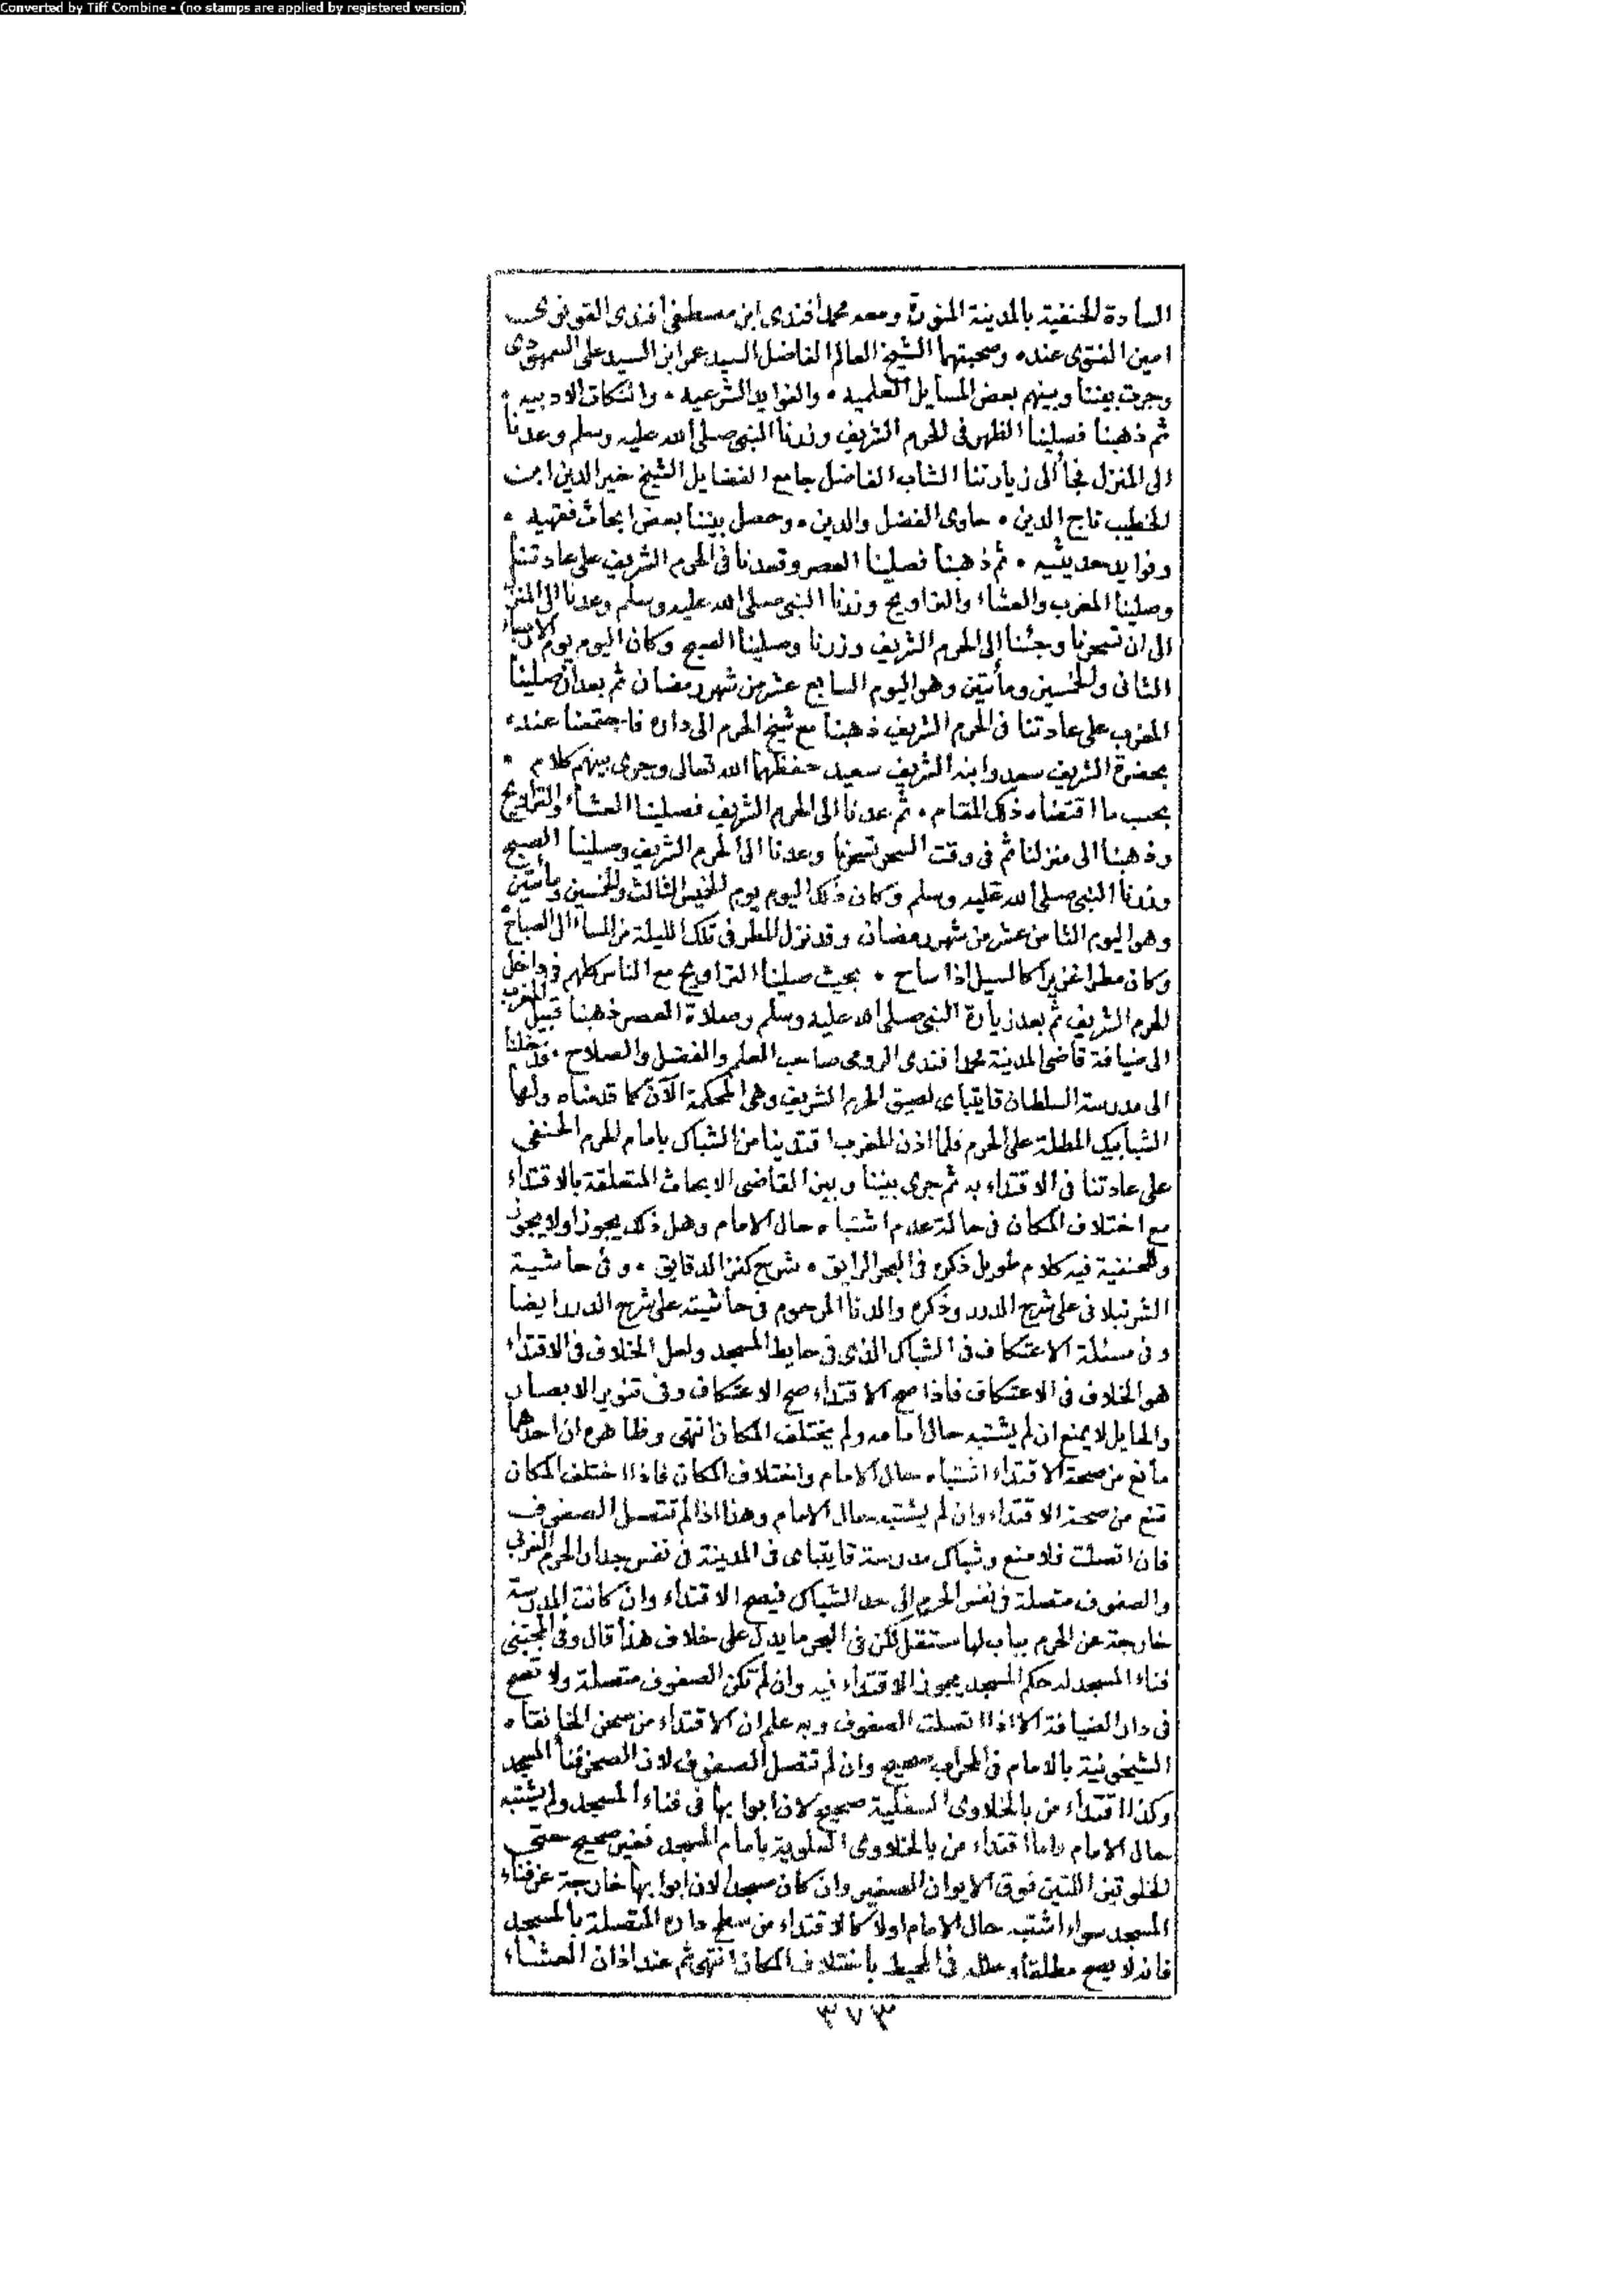 Converted by Tiff Combine - (no stamps are applied by registered version)
السادة الحنفية بالمدينة المنورة ومعه محمد أفندى ابن مصطفى افندى القونوى
امين الفتوى عنده وصحبتهما الشيخ العالم الفاضل السيد عمر ابن السيد على السمهودى
وجرت بيننا وبينهم بعض المسايل العلميه • والفوايد الشرعيه • والنكات الادبيه •
ثم ذهبنا فصلينا الظهر فى الحرم الشريف وزرنا النبى صلى الله عليه وسلم وعدنا
الى المنزل فجأ الى زيارتنا الشاب الفاضل جامع الفضايل الشيخ خير الدين ابن
الخطيب تاج الدين • حاوى الفضل والدين • وحصل بيننا بعض ابحاث فقهيه •
وفوايد حديثيه • ثم ذهبنا فصلينا العصر وقعدنا فى الحرم الشريف على عادتنا
وصلينا المغرب والعشاء والتراويح وزرنا النبى صلى الله عليه وسلم وعدنا الى المنزل
الى ان تسحرنا وجئنا الى الحرم الشريف وزرنا وصلينا الصبح وكان اليوم يوم الاربعاء
الثانى والخمسين ومأتين وهو اليوم السابع عشر من شهر رمضان ثم بعد ان صلينا
المغرب على عادتنا فى الحرم الشريف ذهبنا مع شيخ الحرم الى داره فاجتمعنا عنده
بحضرة الشريف سعد وابنه الشريف سعيد حفظهما الله تعالى وجرى بينهم كلام •
بحسب ما اقتضاه ذلك المقام • ثم عدنا الى الحرم الشريف فصلينا العشاء والتراويح
وذهبنا الى منزلنا ثم فى وقت السحر تسحرنا وعدنا الى الحرم الشريف وصلينا الصبح
وزرنا النبى صلى الله عليه وسلم وكان ذلك اليوم يوم الخميس الثالث والخمسين ومأتين
وهو اليوم الثامن عشر من شهر رمضان وقد نزل المطر فى تلك الليلة من المساء الى الصباح
وكان مطرا غزيرا كالسيل اذا ساح • بحيث صلينا التراويح مع الناس كلهم فى داخل
الحرم الشريف ثم بعد زيارة النبى صلى الله عليه وسلم وصلاة العصر ذهبنا قبيل المغرب
الى ضيافة قاضى المدينة محمد افندى الرومى صاحب العلم والفضل والصلاح • فدخلنا
الى مدرسة السلطان قايتباى لصيق الحرم الشريف وهى المحكمة الآن كما قدمناه ولها
الشبابيك المطلة على الحرم فلما اذن المغرب اقتدينا من الشباك بامام الحرم الحنفى
على عادتنا فى الاقتداء به ثم جرى بيننا وبين القاضى الابحاث المتعلقة بالاقتداء
مع اختلاف المكان فى حالة عدم اشتباه حال الامام وهل ذلك يجوز اولا يجوز
وللحنفية فيه كلام طويل ذكره فى البحر الرايق • شرح كنز الدقايق • وفى حاشية
الشرنبلانى على شرح الدرر وذكره والدنا المرحوم فى حاشيته على شرح الدرر ايضا
وفى مسئلة الاعتكاف فى الشباك الذى فى حايط المسجد ولعل الخلاف فى الاقتداء
هو الخلاف فى الاعتكاف فاذا صح الاقتداء صح الاعتكاف وفى تنوير الابصار
والحايل لا يمنع ان لم يشتبه حال امامه ولم يختلف المكان انتهى وظاهره ان احدهما
مانع من صحة الاقتداء اشتباه حال الامام واختلاف المكان فاذا اختلف المكان
منع من صحة الاقتداء وان لم يشتبه حال الامام وهذا اذا لم تتصل الصفوف
فان اتصلت فلا منع وشباك مدرسة قايتباى فى المدينة فى نفس جدار الحرم الغربى
والصفوف متصلة فى نفس الحرم الى حد الشباك فيصح الاقتداء وان كانت المدرسة
خارجة عن الحرم بباب لها مستقل لكن فى البحر ما يدل على خلاف هذا قال وفى المجتبى
فناء المسجد له حكم المسجد يجوز الاقتداء فيه وان لم تكن الصفوف متصلة ولا تصح
فى دار الضيافة الا اذا اتصلت الصفوف وبه علم ان الاقتداء من صحن الخانقاه
الشيخونية بالامام فى المحراب صحيح وان لم تتصل الصفوف لان الصحن فنأ المسجد
وكذا اقتداء من بالخلاوى السفلية صحيح لان ابوابها فى فناء المسجد ولم يشتبه
حال الامام واما اقتداء من بالخلاوى العلوية بامام المسجد فغير صحيح حتى
الخلوتين اللتين فوق الايوان الصغير وان كان مسجدا لان ابوابها خارجة عن فناء
المسجد سواء اشتبه حال الامام اولا كالاقتداء من سطح داره المتصلة بالمسجد
فانه لا يصح مطلقا وعلله فى المحيط باختلاف المكان انتهى ثم عند اذان العشاء
٣٧٣